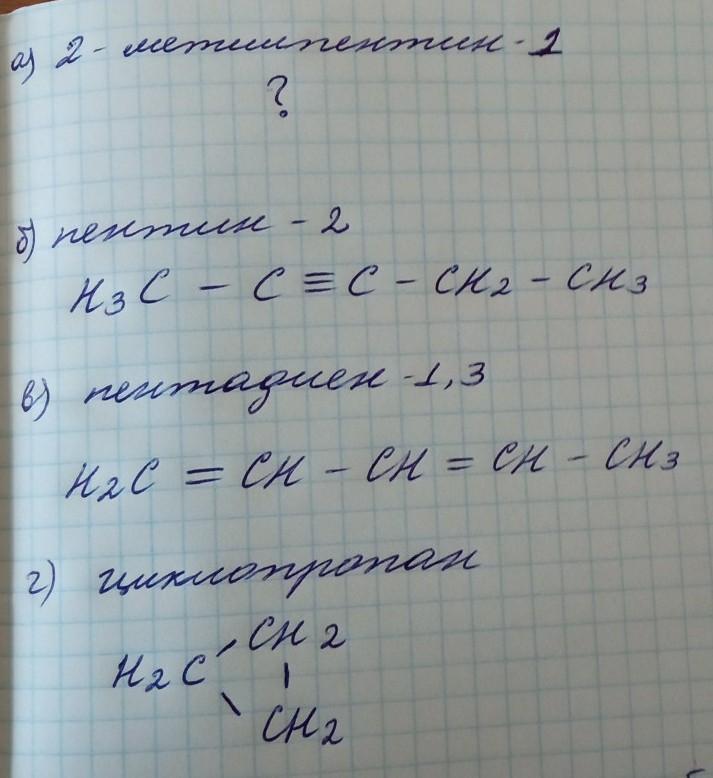 а) 2 - метилпентин - 1
?
б) пентин - 2
H3C - C ≡ C - CH2 - CH3
в) пентадиен - 1, 3
H2C = CH - CH = CH - CH3
г) циклопропан
CH2
H2C
CH2